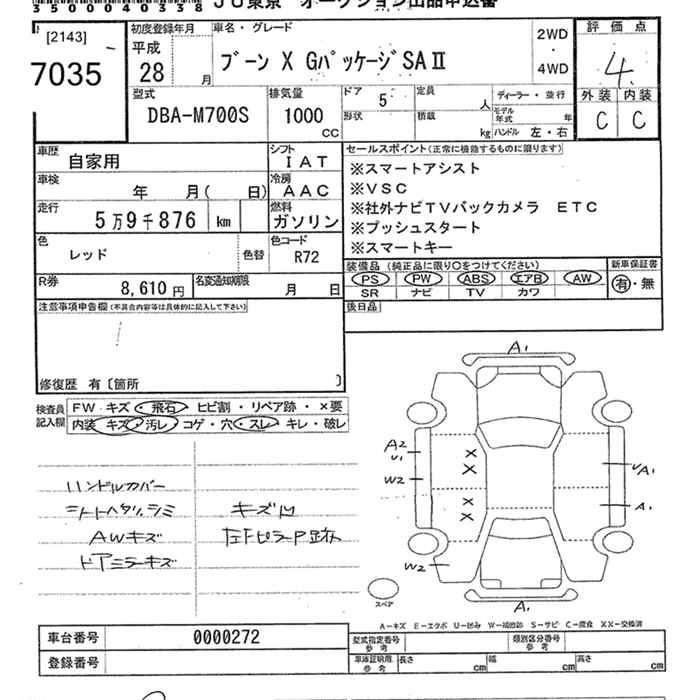 3500040338 JU東京 オークション出品申込書
[2143]
7035
初度登録年月
平成
28 月
車名・グレード
ブーン X Gパッケージ SAⅡ
2WD
・
4WD
評価点
4
外装 内装
C C
型式
DBA-M700S
排気量
1000
CC
ドア 5
形状
定員 人
積載 kg
ディーラー・並行
モデル年式 年
ハンドル 左・右
車歴 自家用
シフト IAT
車検 年 月( 日)
冷房 AAC
走行 5万9千876 km
燃料 ガソリン
色 レッド 色替
色コード R72
R券 8,610円
名変通知期限 月 日
セールスポイント(正常に機能するものに限ります)
※スマートアシスト
※VSC
※社外ナビTVバックカメラ ETC
※プッシュスタート
※スマートキー
装備品(純正品に限り○をつけてください)
PS PW ABS エアB AW
SR ナビ TV カワ
新車保証書
有・無
後日品
注意事項申告欄(不具合内容等は具体的に記入して下さい)
修復歴 有〔箇所 〕
検査員記入欄
FW キズ・飛石・ヒビ割・リペア跡・×要
内装 キズ・汚レ・コゲ・穴・スレ・キレ・破レ
ハンドルカバー
シートヘタリ、シミ
AWキズ
ドアミラーキズ
キズ凹
左FピラーP跡
A1
A2
U1
W2
W2
UA1
A1
A1
スペア
A-キズ E-エクボ U-凹み W-補修跡 S-サビ C-腐食 XX-交換済
車台番号 0000272
登録番号
型式指定番号 参考
類別区分番号 参考
車庫証明用 参考 長さ cm 幅 cm 高さ cm